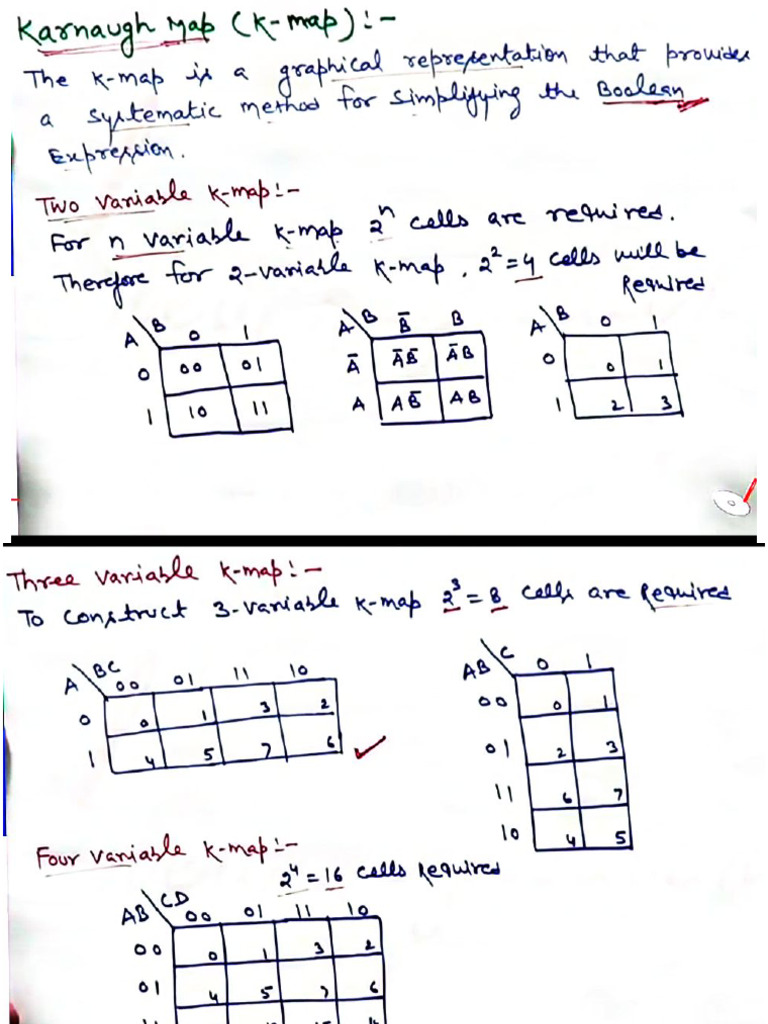 Karnaugh Map (K-map):-
The K-map is a graphical representation that provides
a systematic method for simplifying the Boolean
Expression.
Two Variable K-map:-
For n variable K-map 2^n cells are required.
Therefore for 2-variable K-map, 2^2=4 cells will be
Required
A B 0 1
0 00 01
1 10 11
A B B̅ B
A̅ A̅B̅ A̅B
A AB̅ AB
A B 0 1
0 0 1
1 2 3
Three Variable K-map:-
To construct 3-variable K-map 2^3=8 cells are Required
A BC 00 01 11 10
0 0 1 3 2
1 4 5 7 6
AB C 0 1
00 0 1
01 2 3
11 6 7
10 4 5
Four Variable K-map:-
2^4=16 cells Required
AB CD 00 01 11 10
00 0 1 3 2
01 4 5 7 6